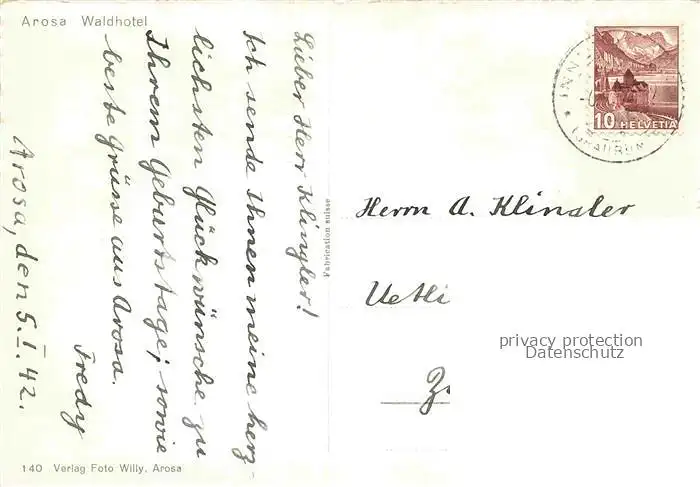 Arosa Waldhotel
Lieber Herr Klingler!
Ich sende Ihnen meine herz-
lichsten Glückwünsche zu
Ihrem Geburtstage; sowie
beste Grüsse aus Arosa.
Fredy
Arosa, den 5. I. 42.
140 Verlag Foto Willy, Arosa
Fabrication suisse
10 HELVETIA
Herrn A. Klingler
Uetli
privacy protection
Datenschutz